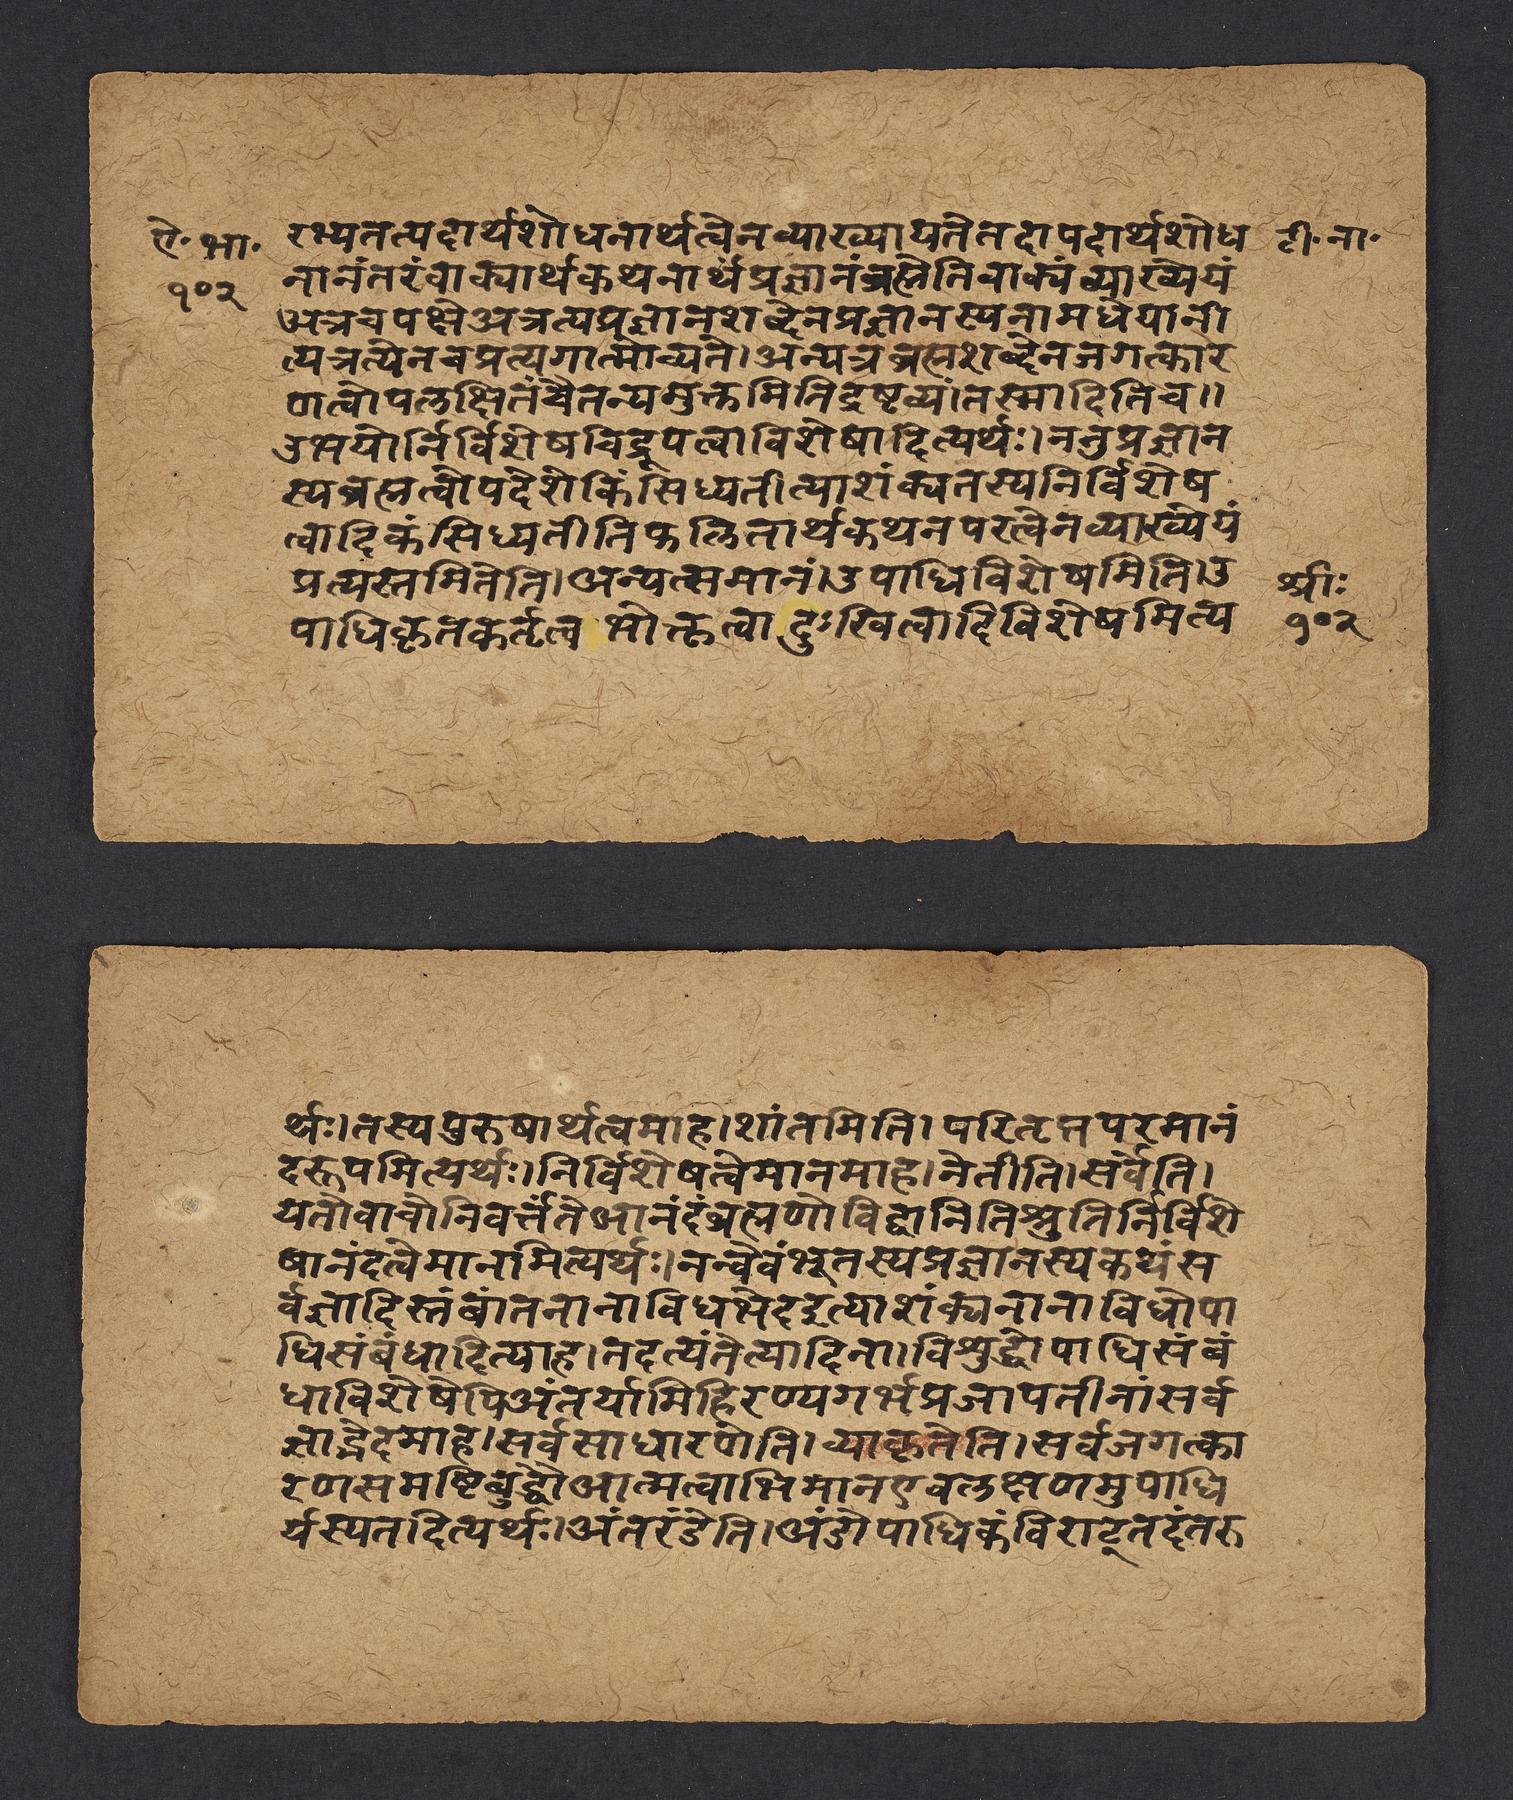 ऐ.भा.
१०२
रभ्यतत्पदार्थशोधनार्थत्वेनव्याख्यायतेतदापदार्थशोध
टी.ना.
नानंतरंवाक्यार्थकथनार्थंप्रज्ञानंब्रह्मेतिवाक्यंव्याख्येयं
अत्रचपक्षेअत्रत्यप्रज्ञानशब्देनप्रज्ञानस्यनामधेयानी
त्यत्रत्येनचप्रत्यगात्मोच्यते।अन्यत्रब्रह्मशब्देनजगत्कार
णत्वोपलक्षितंचैतन्यमुक्तमितिद्रष्टव्यं।तस्मादितिच॥
उभयोर्निर्विशेषचिद्रूपत्वाविशेषादित्यर्थः।ननुप्रज्ञान
स्यब्रह्मत्वोपदेशेकिंसिध्यतीत्याशंक्यतस्यनिर्विशेष
त्वादिकंसिध्यतीतिफलितार्थकथनपरत्वेनव्याख्येयं
प्रत्यस्तमितेति।अन्यत्समानं।उपाधिविशेषमिति।उ
पाधिकृतकर्तृत्वभोक्तृत्वादुःखित्वादिविशेषमित्य
श्रीः
१०२
र्थः।तस्यपुरुषार्थत्वमाह।शांतमिति।परितृप्तपरमानं
दरूपमित्यर्थः।निर्विशेषत्वेमानमाह।नेतीति।सर्वेति।
यतोवाचोनिवर्त्तंतेआनंदंब्रह्मणोविद्वानितिश्रुतिर्निर्विशे
षानंदत्वेमानमित्यर्थः।नन्वेवंभूतस्यप्रज्ञानस्यकथंस
र्वज्ञादिस्तंबांतनानाविधभेदइत्याशंक्यनानाविधोपा
धिसंबंधादित्याह।तदत्यंतेत्यादिना।विश्रुद्धोपाधिसंबं
धाविशेषेपिअंतर्यामिहिरण्यगर्भप्रजापतीनांसर्व
ज्ञाद्भेदमाह।सर्वसाधारणेति।व्याकृतेति।सर्वजगत्का
रणसमष्टिबुद्धौआत्मत्वाभिमानएवलक्षणमुपाधि
र्यस्यतदित्यर्थः।अंतरंडेति।अंडोपाधिकंविराट्तदंतरु